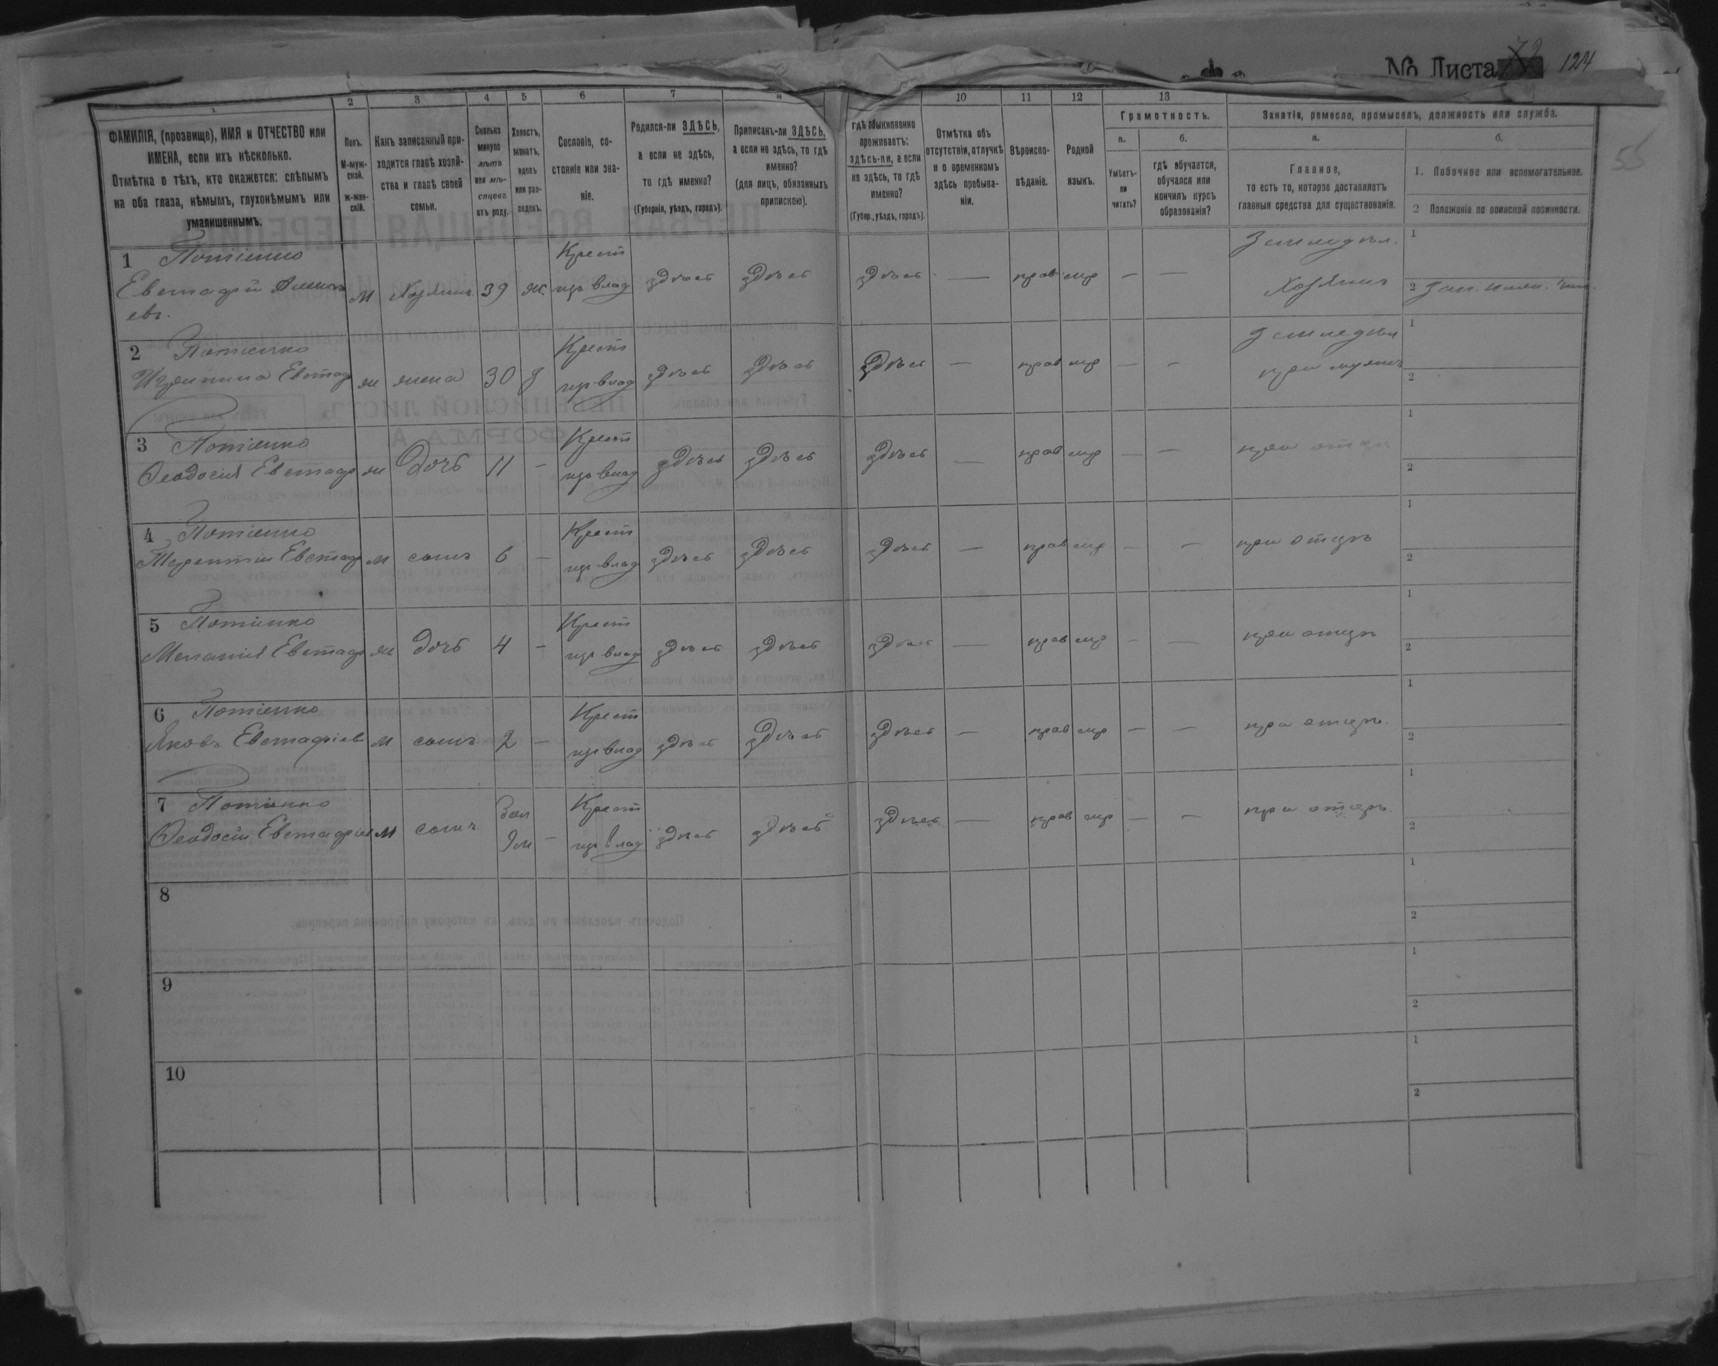 № Листа 124
55
1 2 3 4 5 6 7 8 10 11 12 13
ФАМИЛІЯ, (прозвище), ИМЯ и ОТЧЕСТВО или
ИМЕНА, если ихъ нѣсколько.
Отмѣтка о тѣхъ, кто окажется: слѣпымъ
на оба глаза, нѣмымъ, глухонѣмымъ или
умалишеннымъ.
Полъ.
М-муж-
ской.
ж-жен-
скій.
Какъ записанный при-
ходится главѣ хозяй-
ства и главѣ своей
семьи.
Сколько
минуло
лѣтъ
или мѣ-
сяцевъ
отъ роду.
Холостъ,
женатъ,
вдовъ
или раз-
веденъ.
Сословіе, со-
стояніе или зва-
ніе.
Родился-ли ЗДѢСЬ,
а если не здѣсь,
то гдѣ именно?
(Губернія, уѣздъ, городъ).
Приписанъ-ли ЗДѢСЬ,
а если не здѣсь, то гдѣ
именно?
(для лицъ, обязанныхъ
припискою).
Гдѣ обыкновенно
проживаетъ:
здѣсь-ли, а если
не здѣсь, то гдѣ
именно?
(Губер., уѣздъ, городъ).
Отмѣтка объ
отсутствіи, отлучкѣ
и о временномъ
здѣсь пребыва-
ніи.
Вѣроиспо-
вѣданіе.
Родной
языкъ.
Грамотность.
а.
Умѣетъ-
ли
читать?
б.
гдѣ обучается,
обучался или
кончилъ курсъ
образованія?
Занятіе, ремесло, промыселъ, должность или служба.
а.
Главное,
то есть то, которое доставляетъ
главныя средства для существованія.
б.
1. Побочное или вспомогательное.
2 Положеніе по воинской повинности.
1 Потіенко
Крест
Земледѣл.
1
Евстафій
м Хозяинъ 39 ж. из влад здѣсь здѣсь здѣсь — прав мр — — Хозяинъ
евъ.
2
2 Потіенко
Крест
Земледѣл
1
Евстаф ж жена 30 з из влад здѣсь здѣсь здѣсь — прав мр — — при мужѣ
2
3 Потіенко
Крест
1
Феодосія Евстаф ж дочь 11 — из влад здѣсь здѣсь здѣсь — прав мр — — при отцѣ
2
4 Потіенко
Крест
1
Терентій Евстаф м сынъ 6 — из влад здѣсь здѣсь здѣсь — прав мр — — при отцѣ
2
5 Потіенко
Крест
1
Меланія Евстаф ж дочь 4 — из влад здѣсь здѣсь здѣсь — прав мр — — при отцѣ
2
6 Потіенко
Крест
1
Яковъ Евстафіев м сынъ 2 — из влад здѣсь здѣсь здѣсь — прав мр — — при отцѣ.
2
7 Потіенко
Крест
1
Феодосій Евстафіев м сынъ 9м — из влад здѣсь здѣсь здѣсь — прав мр — — при отцѣ.
2
8
1
2
9
1
2
10
1
2